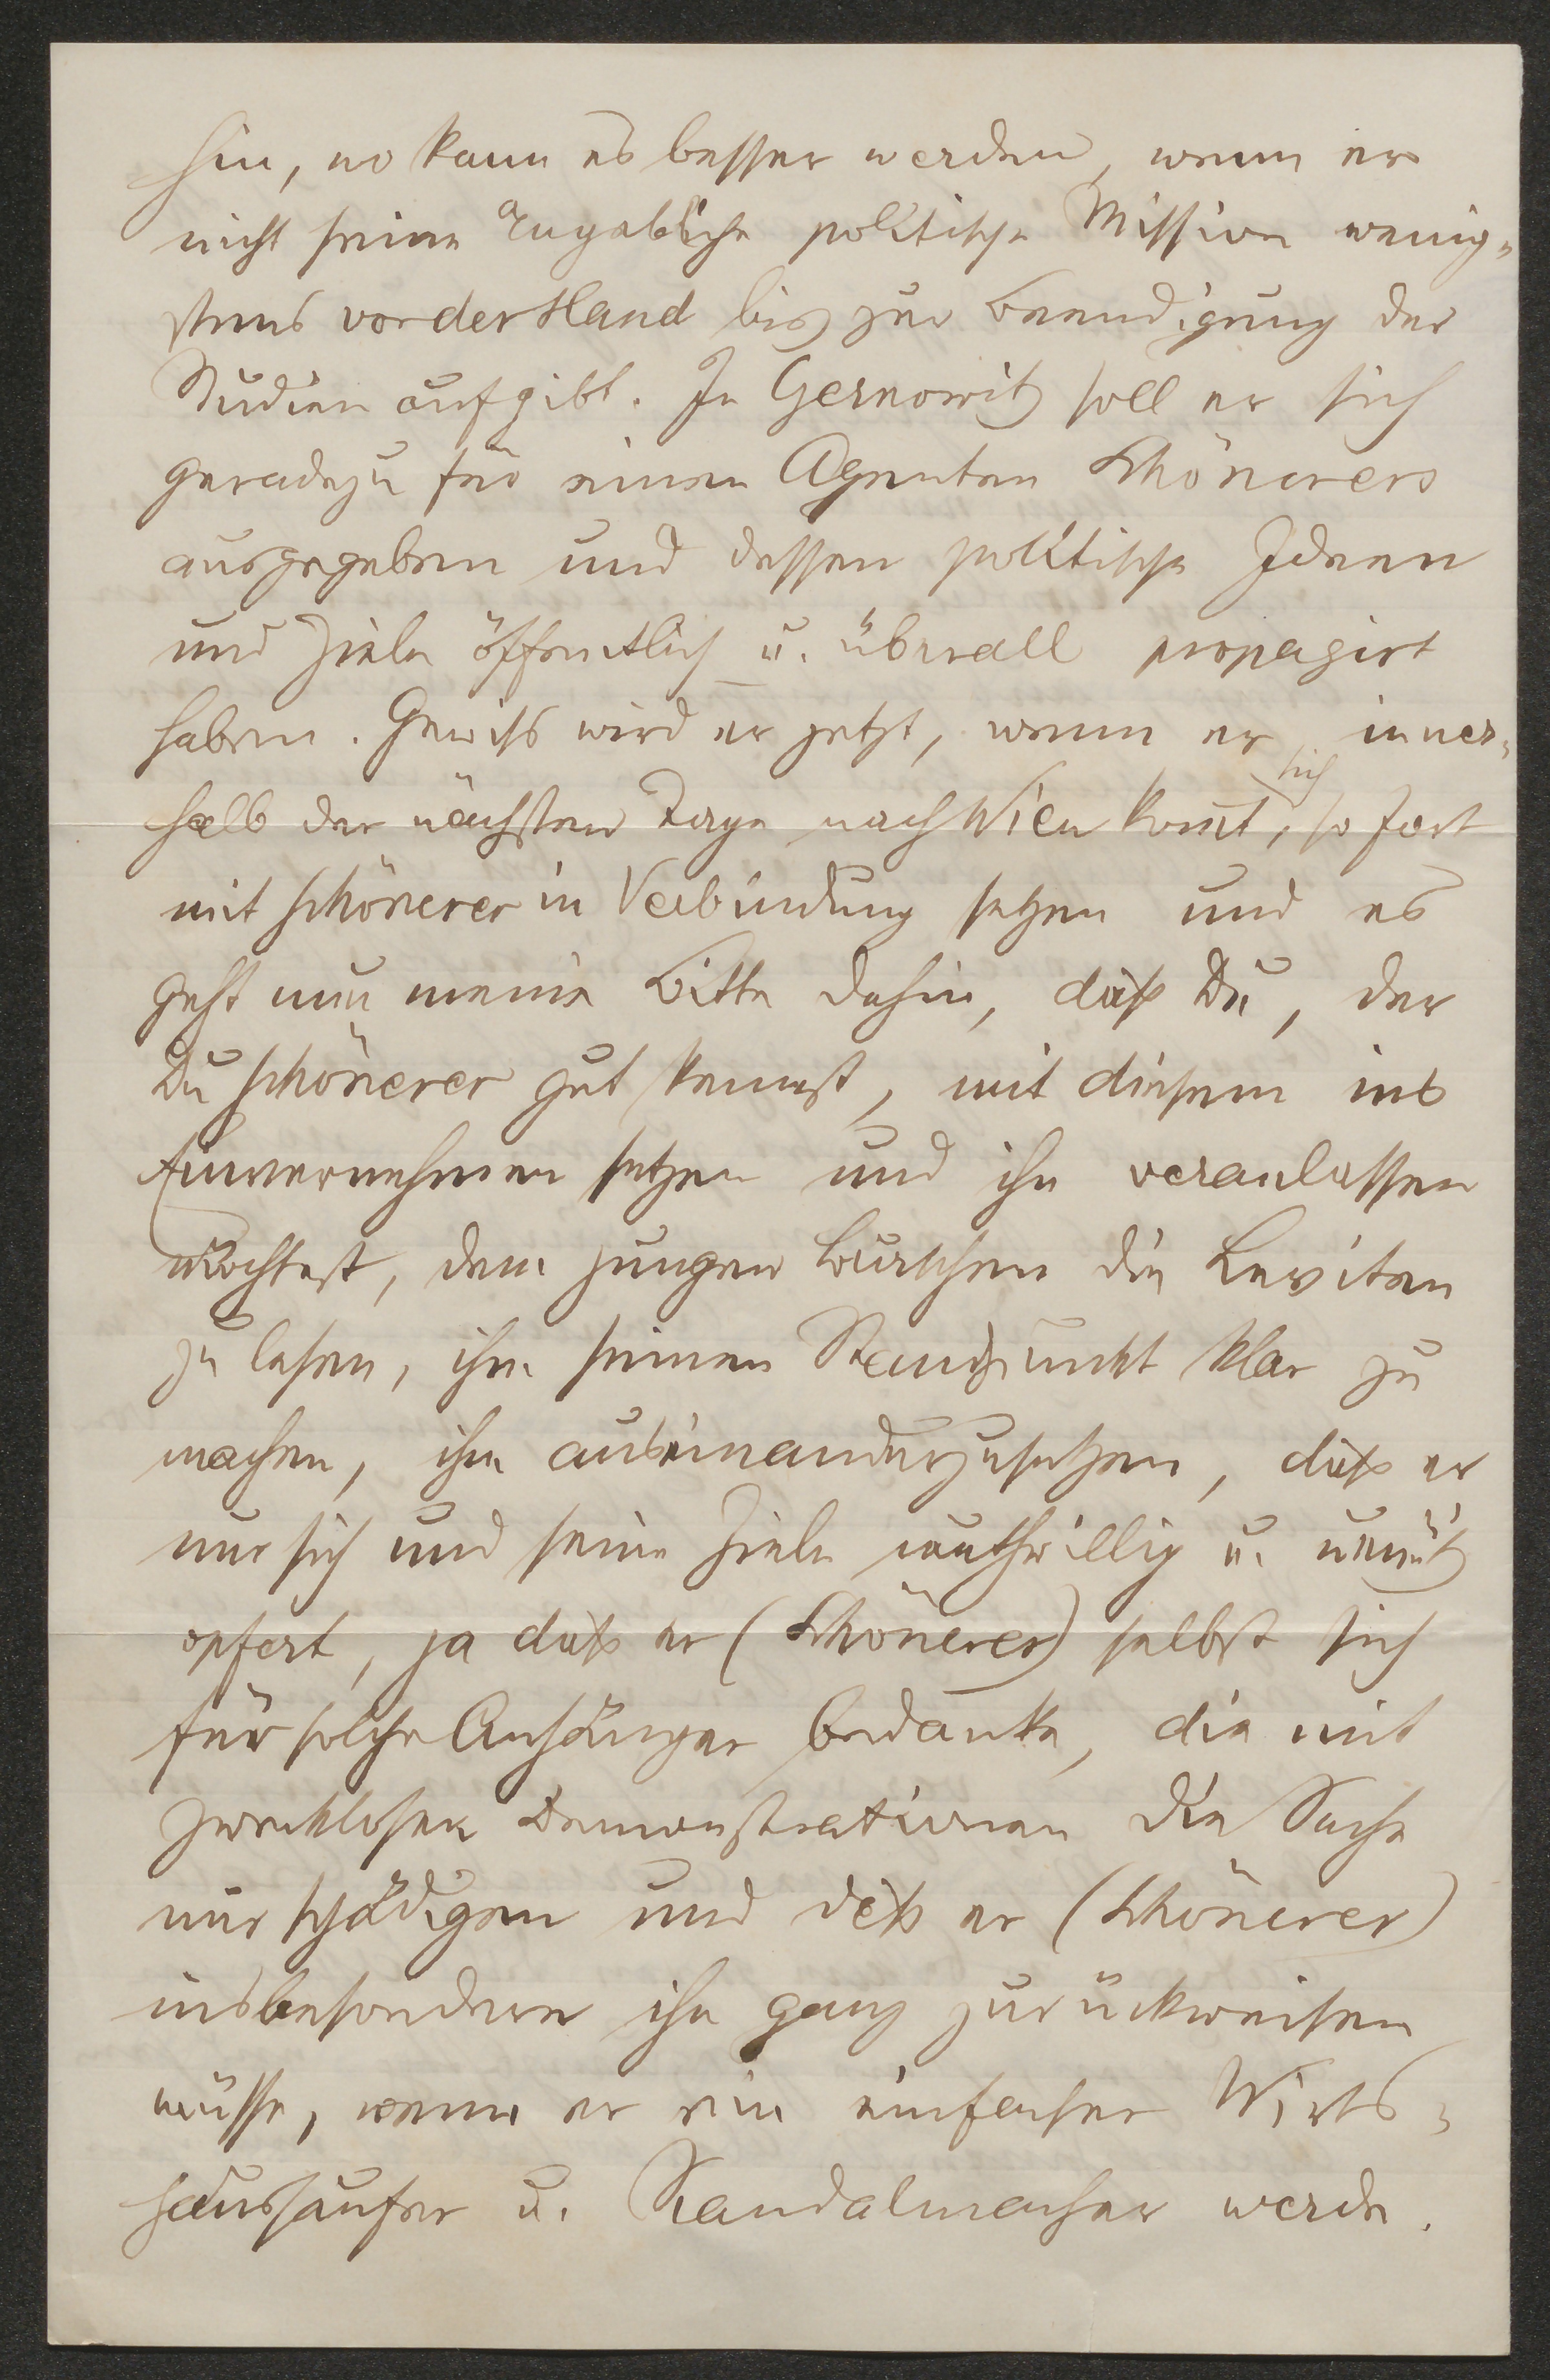 hin, wo kann es besser werden, wenn er
nicht seine angebliche politische Mission wenig=
stens vor der Hand bis zur Beendigung der
Studien aufgibt. In Czernowitz soll er sich
geradezu für einen Agenten Schönerers
ausgegeben und dessen politische Ideen
und Ziele öffentlich u. überall propagirt
haben. Gewiss wird er jetzt, wenn er inner=
halb der nächsten Tage nach Wien komt, sich sofort
mit Schönerer in Verbindung setzen und es
geht nun meine Bitte dahin, daß Du, der
Du Schönerer gut kennst, mit diesem ins
Einvernehmen setzen und ihn veranlassen
möchtest, dem jungen Burschen die Leviten
zu lesen, ihm seinen Standpunkt klar zu
machen, ihm auseinanderzusetzen, daß er
nur sich und seine Ziele muthwillig u. unnütz
opfert, ja daß er (Schönerer) selbst sich
für solche Anhänger bedanke, die mit
zwecklosen Demonstrationen die Sache
nur schädigen und daß er (Schönerer)
insbesondere ihn ganz zurückweisen
müsse, wenn er ein einfacher Wirts=
haussäufer u. Skandalmacher werde.